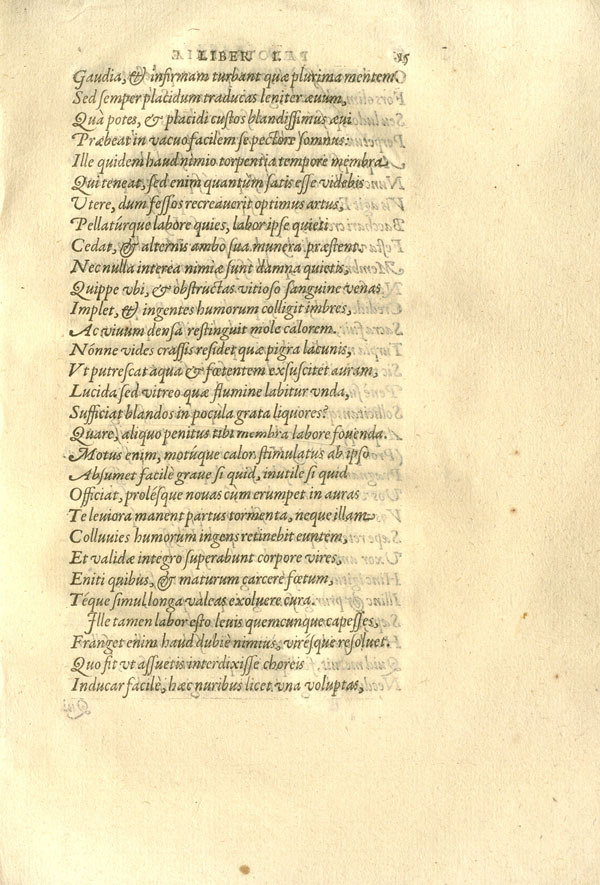 LIBER I. 15
Gaudia, & infirmam turbant quæ plurima mentem.
Sed semper placidum traducas leniter æuum,
Quà potes, & placidi custos blandissimus æui
Præbeat in vacuo facilem se pectore somnus:
Ille quidem haud nimio torpentia tempore membra
Qui teneat, sed enim quantùm satis esse videbis
Vtere, dum fessos recreauerit optimus artus,
Pellatúrque labore quies, labor ipse quieti
Cedat, & alternis ambo sua munera præstent.
Nec nulla interea nimiæ sunt damna quietis,
Quippe vbi, & obstructas vitioso sanguine venas
Implet, & ingentes humorum colligit imbres,
Ac viuum densa restinguit mole calorem.
Nónne vides crassis residet quæ pigra lacunis,
Vt putrescat aqua & fœtentem exsuscitet auram,
Lucida sed vitreo quæ flumine labitur vnda,
Sufficiat blandos in pocula grata liquores?
Quare, aliquo penitus tibi membra labore fouenda.
Motus enim, motúque calor stimulatus ab ipso
Absumet facilè graue si quid, inutile si quid
Officiat, prolésque nouas cùm erumpet in auras
Te leuiora manent partus tormenta, neque illam
Colluuies humorum ingens retinebit euntem,
Et validæ integro superabunt corpore vires,
Eniti quibus, & maturum carcere fœtum,
Téque simul longa valeas exoluere cura.
Ille tamen labor esto leuis quemcunque capesses,
Franget enim haud dubiè nimius, virésque resoluet.
Quo fit vt assuetis interdixisse choreis
Inducar facilè, hæc nuribus licet vna voluptas,